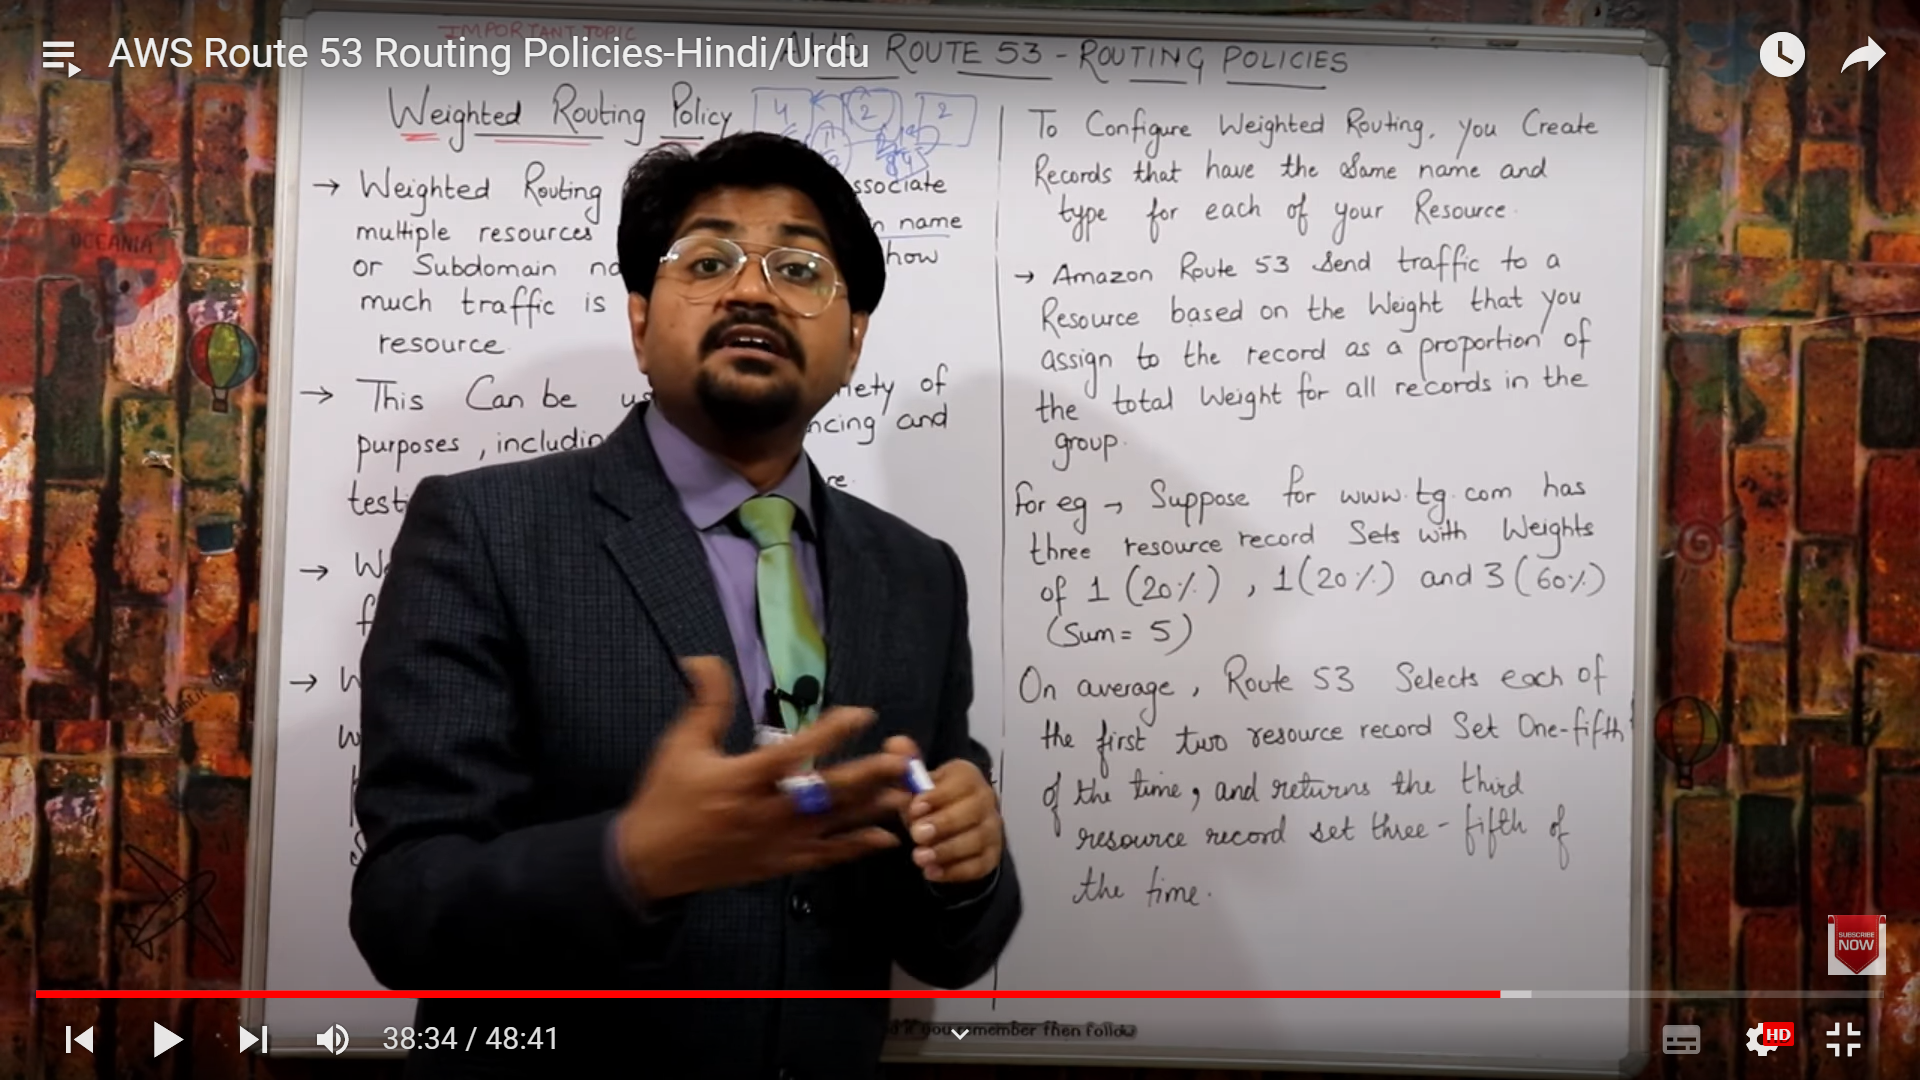 AWS Route 53 Routing Policies-Hindi/Urdu
IMPORTANT TOPIC
ROUTE 53 - ROUTING POLICIES
Weighted Routing Policy
4 2 2
→ Weighted Routing ssociate
multiple resources n name
or Subdomain na how
much traffic is
resource.
→ This Can be us riety of
purposes, includin ncing and
testi re.
→ W
f
→ W
w
To Configure Weighted Routing, you Create
Records that have the Same name and
type for each of your Resource.
→ Amazon Route 53 Send traffic to a
Resource based on the Weight that you
assign to the record as a proportion of
the total Weight for all records in the
group.
For eg → Suppose for www.tg.com has
three resource record Sets with Weights
of 1 (20%), 1(20%) and 3 (60%)
(Sum = 5)
On average, Route 53 Selects each of
the first two resource record Set One-fifth
of the time, and returns the third
resource record set three-fifth of
the time.
OCEANIA
SUBSCRIBE
NOW
if you remember then follow
38:34 / 48:41
HD